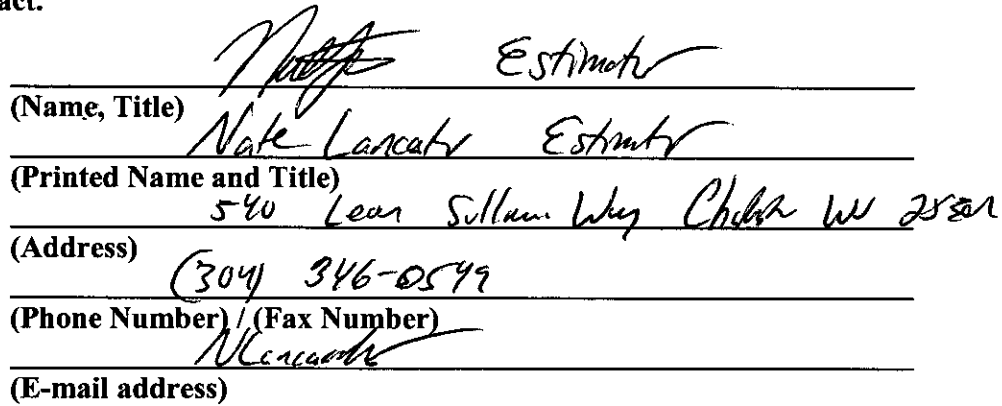 act.
Estimator
(Name, Title)
Nate Lancaster Estimator
(Printed Name and Title)
540 Leon Sullivan Way Charleston WV
(Address)
(304) 346-0549
(Phone Number) / (Fax Number)
(E-mail address)